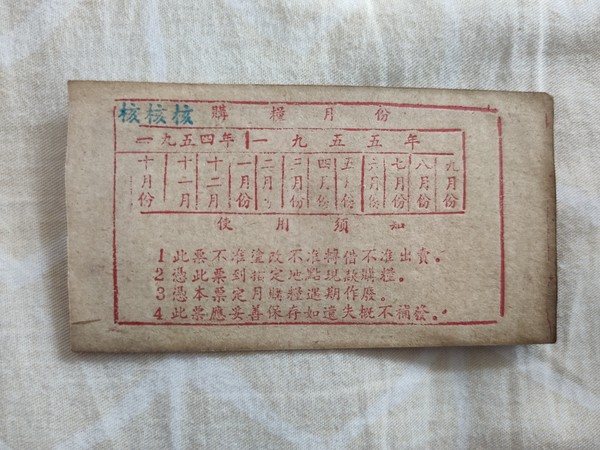 核核核 購糧月份
一九五四年 一九五五年
十月份 十一月 十二月份 一月份 二月份 三月份 四月份 五月份 六月份 七月份 八月份 九月份
使用須知
1 此票不准塗改不准轉借不准出賣。
2 憑此票到指定地點現款購糧。
3 憑本票定月購糧過期作廢。
4 此票應妥善保存如遺失概不補發。